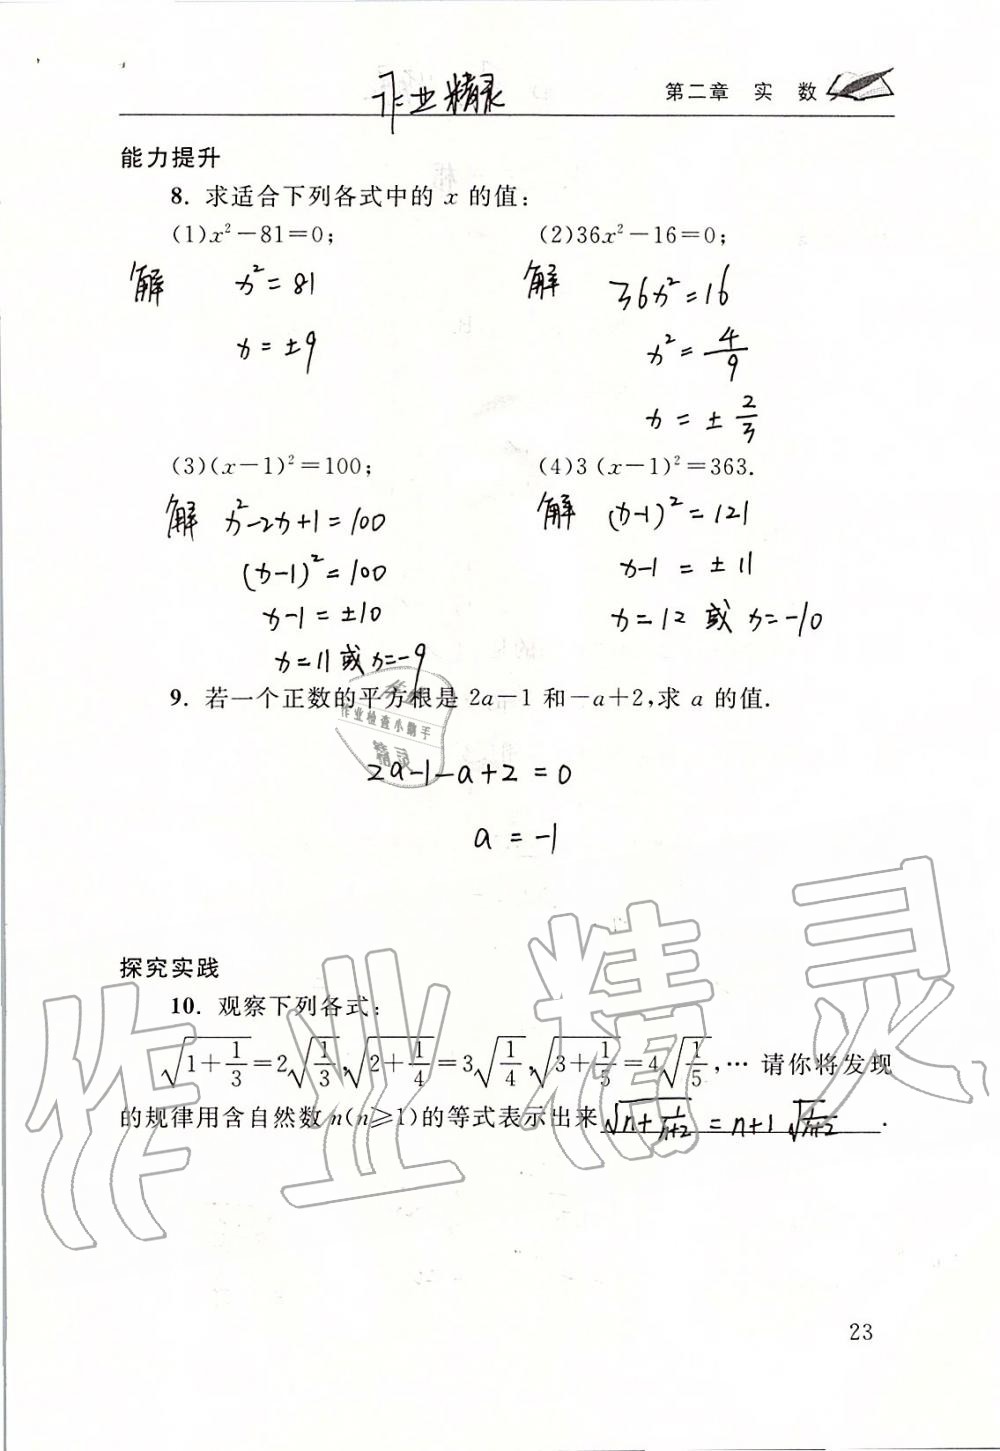 作业精灵
第二章 实 数
能力提升
8. 求适合下列各式中的 x 的值:
(1)x²-81=0; (2)36x²-16=0;
解 x²=81 解 36x²=16
x=±9 x²=4/9
x=±2/3
(3)(x-1)²=100; (4)3(x-1)²=363.
解 x²-2x+1=100 解 (x-1)²=121
(x-1)²=100 x-1=±11
x-1=±10 x=12 或 x=-10
x=11 或 x=-9
9. 若一个正数的平方根是 2a-1 和-a+2,求 a 的值.
作业检查小助手
2a-1-a+2=0
a=-1
作业精灵
探究实践
10. 观察下列各式:
√(1+1/3)=2√(1/3),√(2+1/4)=3√(1/4),√(3+1/5)=4√(1/5),… 请你将发现
的规律用含自然数 n(n≥1)的等式表示出来 √(n+1/(n+2))=n+1√(1/(n+2)).
23